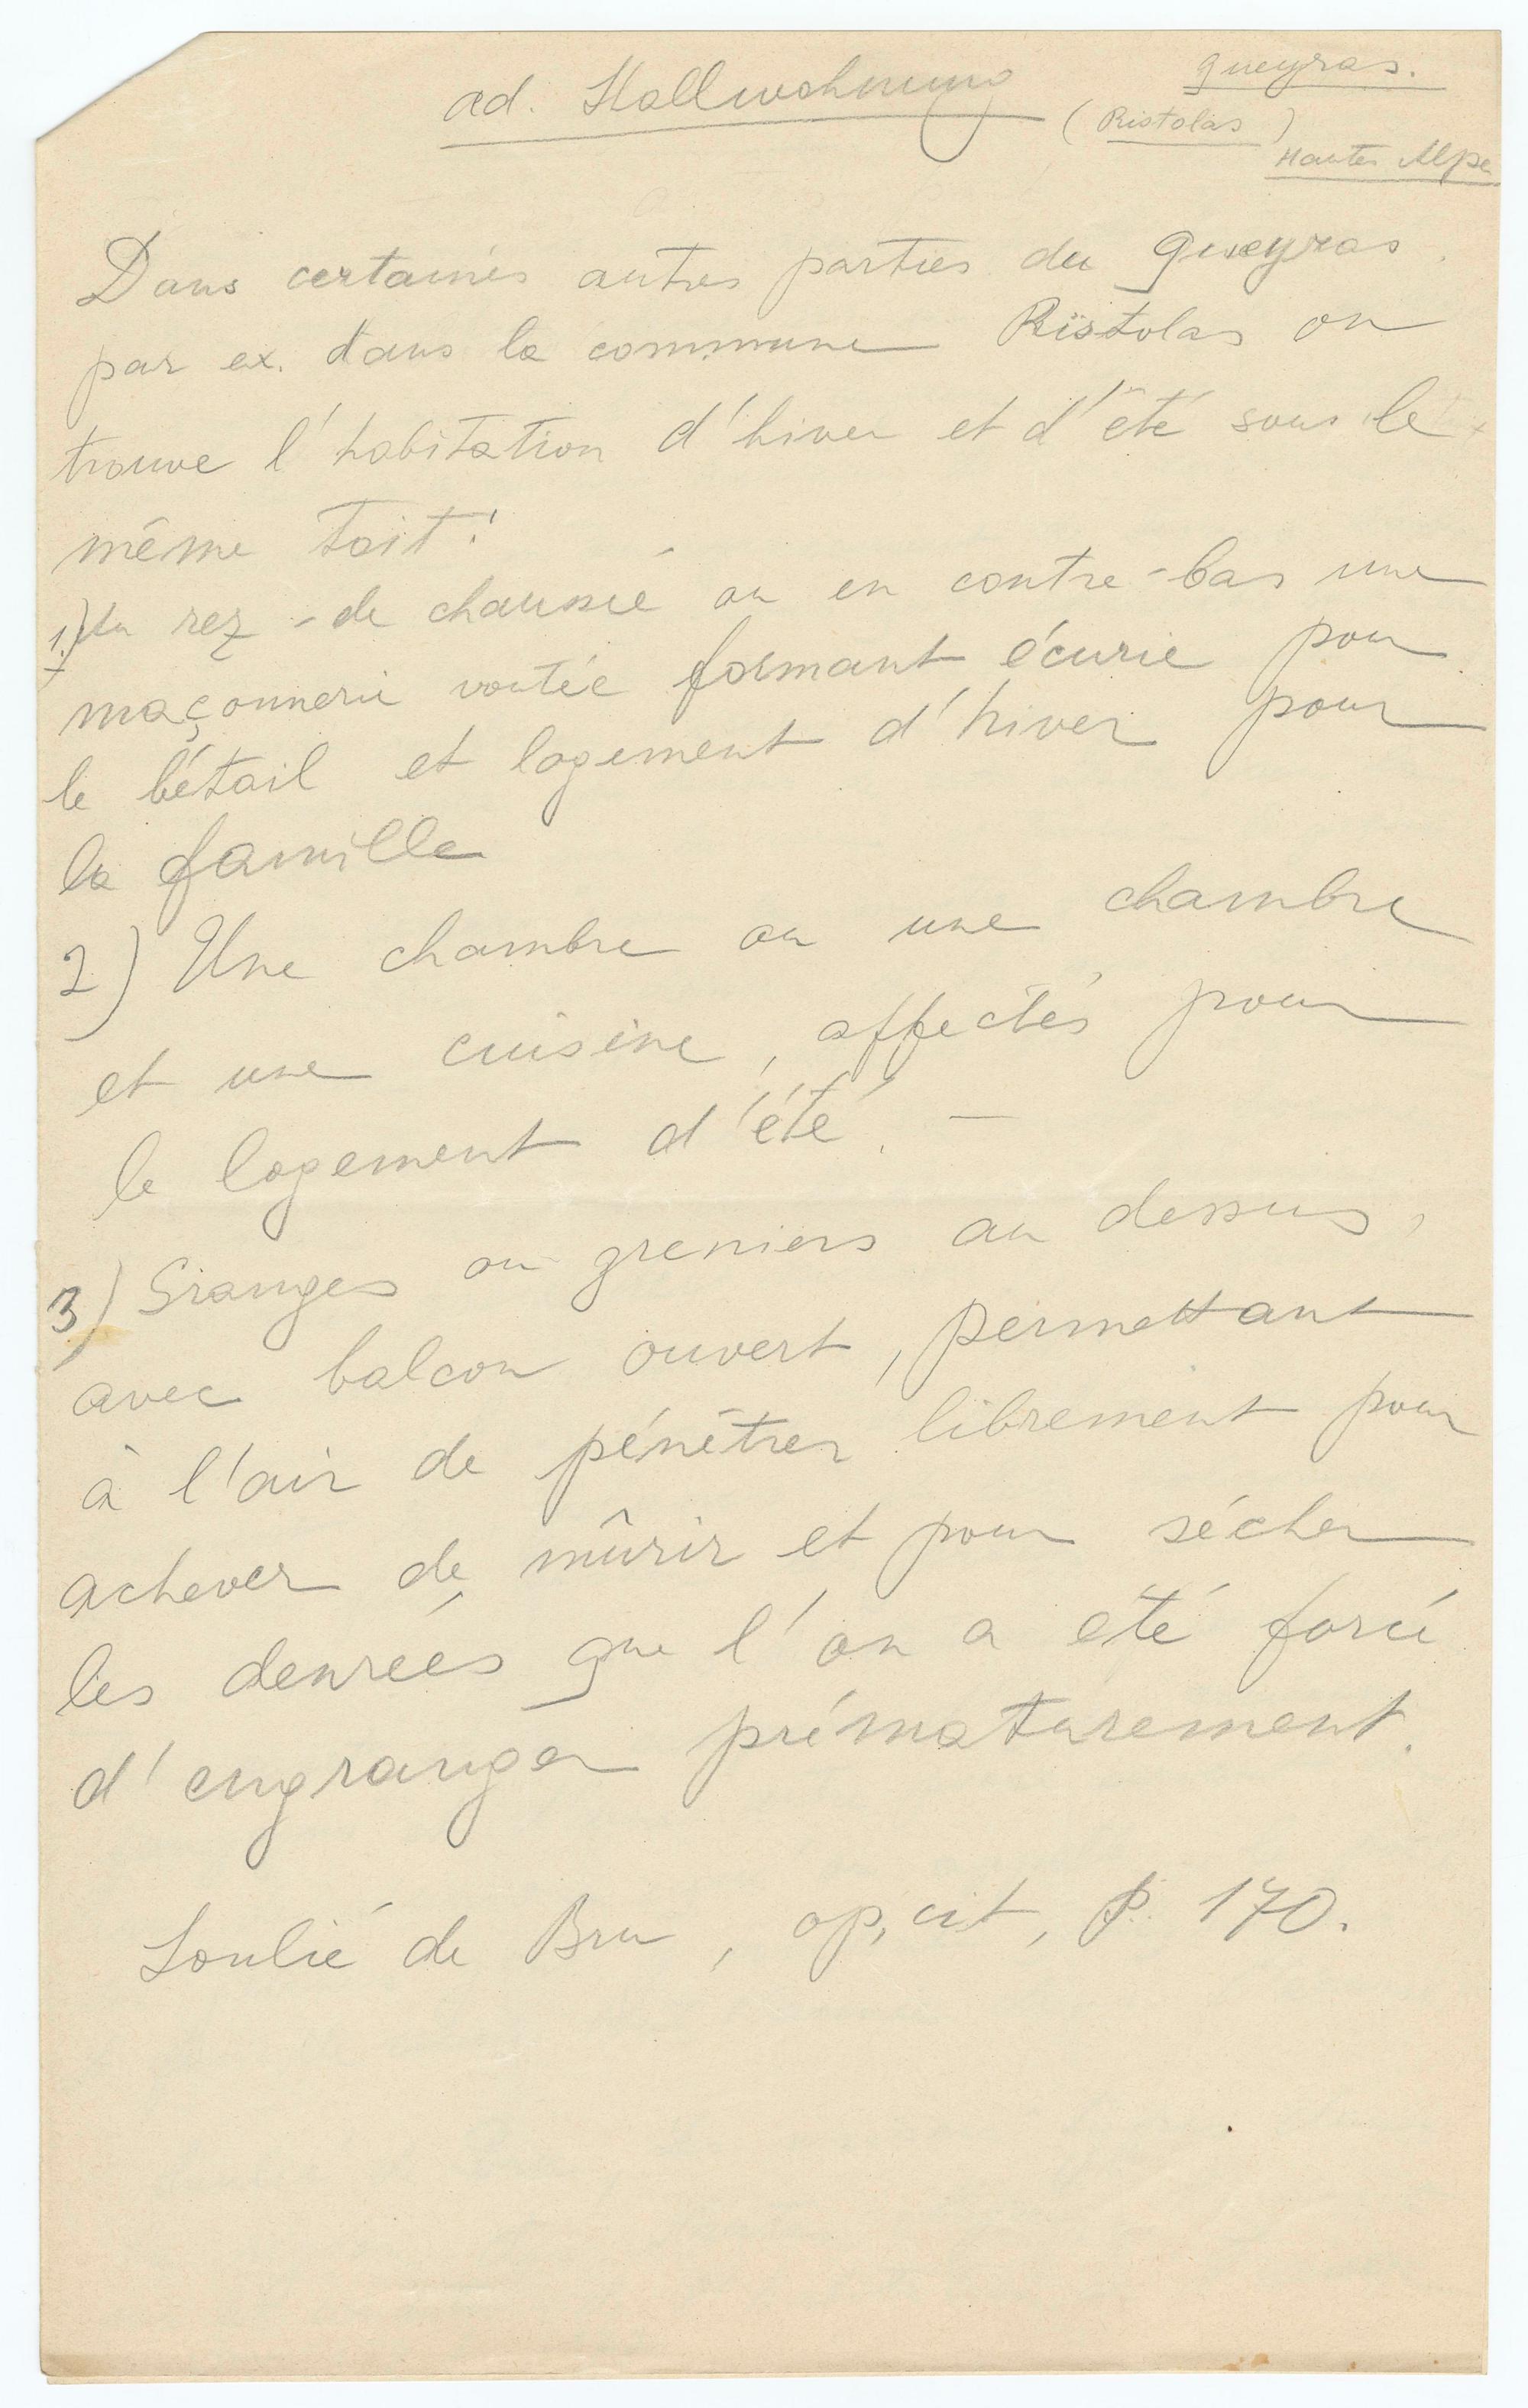 ad. Stallwohnung
Queyras.
(Ristolas)
Hautes Alpes
Dans certaines autres parties du Queyras
par ex. dans la commune Ristolas on
trouve l'habitation d'hiver et d'été sous le
même toit:
1.) Au rez-de chaussée ou en contre-bas une
maçonnerie voutée formant écurie pour
le bétail et logement d'hiver pour
la famille
2) Une chambre ou une chambre
et une cuisine, affectés pour
le logement d'été. —
3) Granges ou greniers au dessus,
avec balcon ouvert, permettant
à l'air de pénétrer librement pour
achever de mûrir et pour sécher
les denrées que l'on a été forcé
d'engranger prématurement.
Soulié de Bru, op, cit, P. 170.